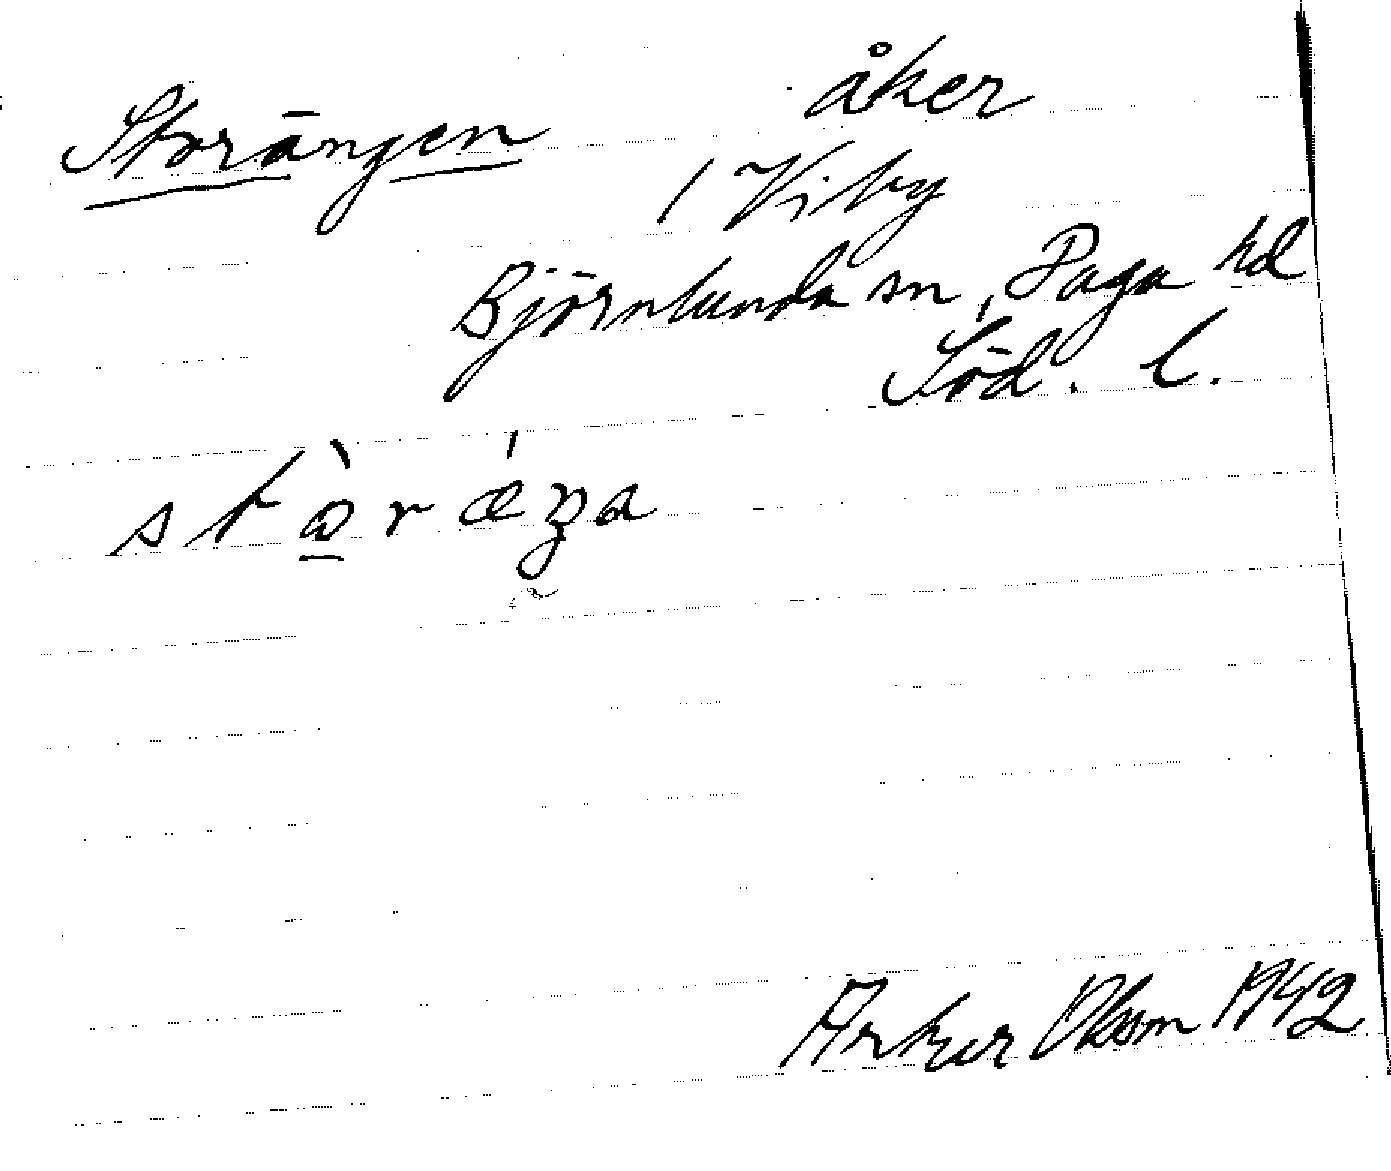 Storängen åker
/ Viby
Björnlunda sn, Daga hd
Söd. l.
Arthur Olsson 1942